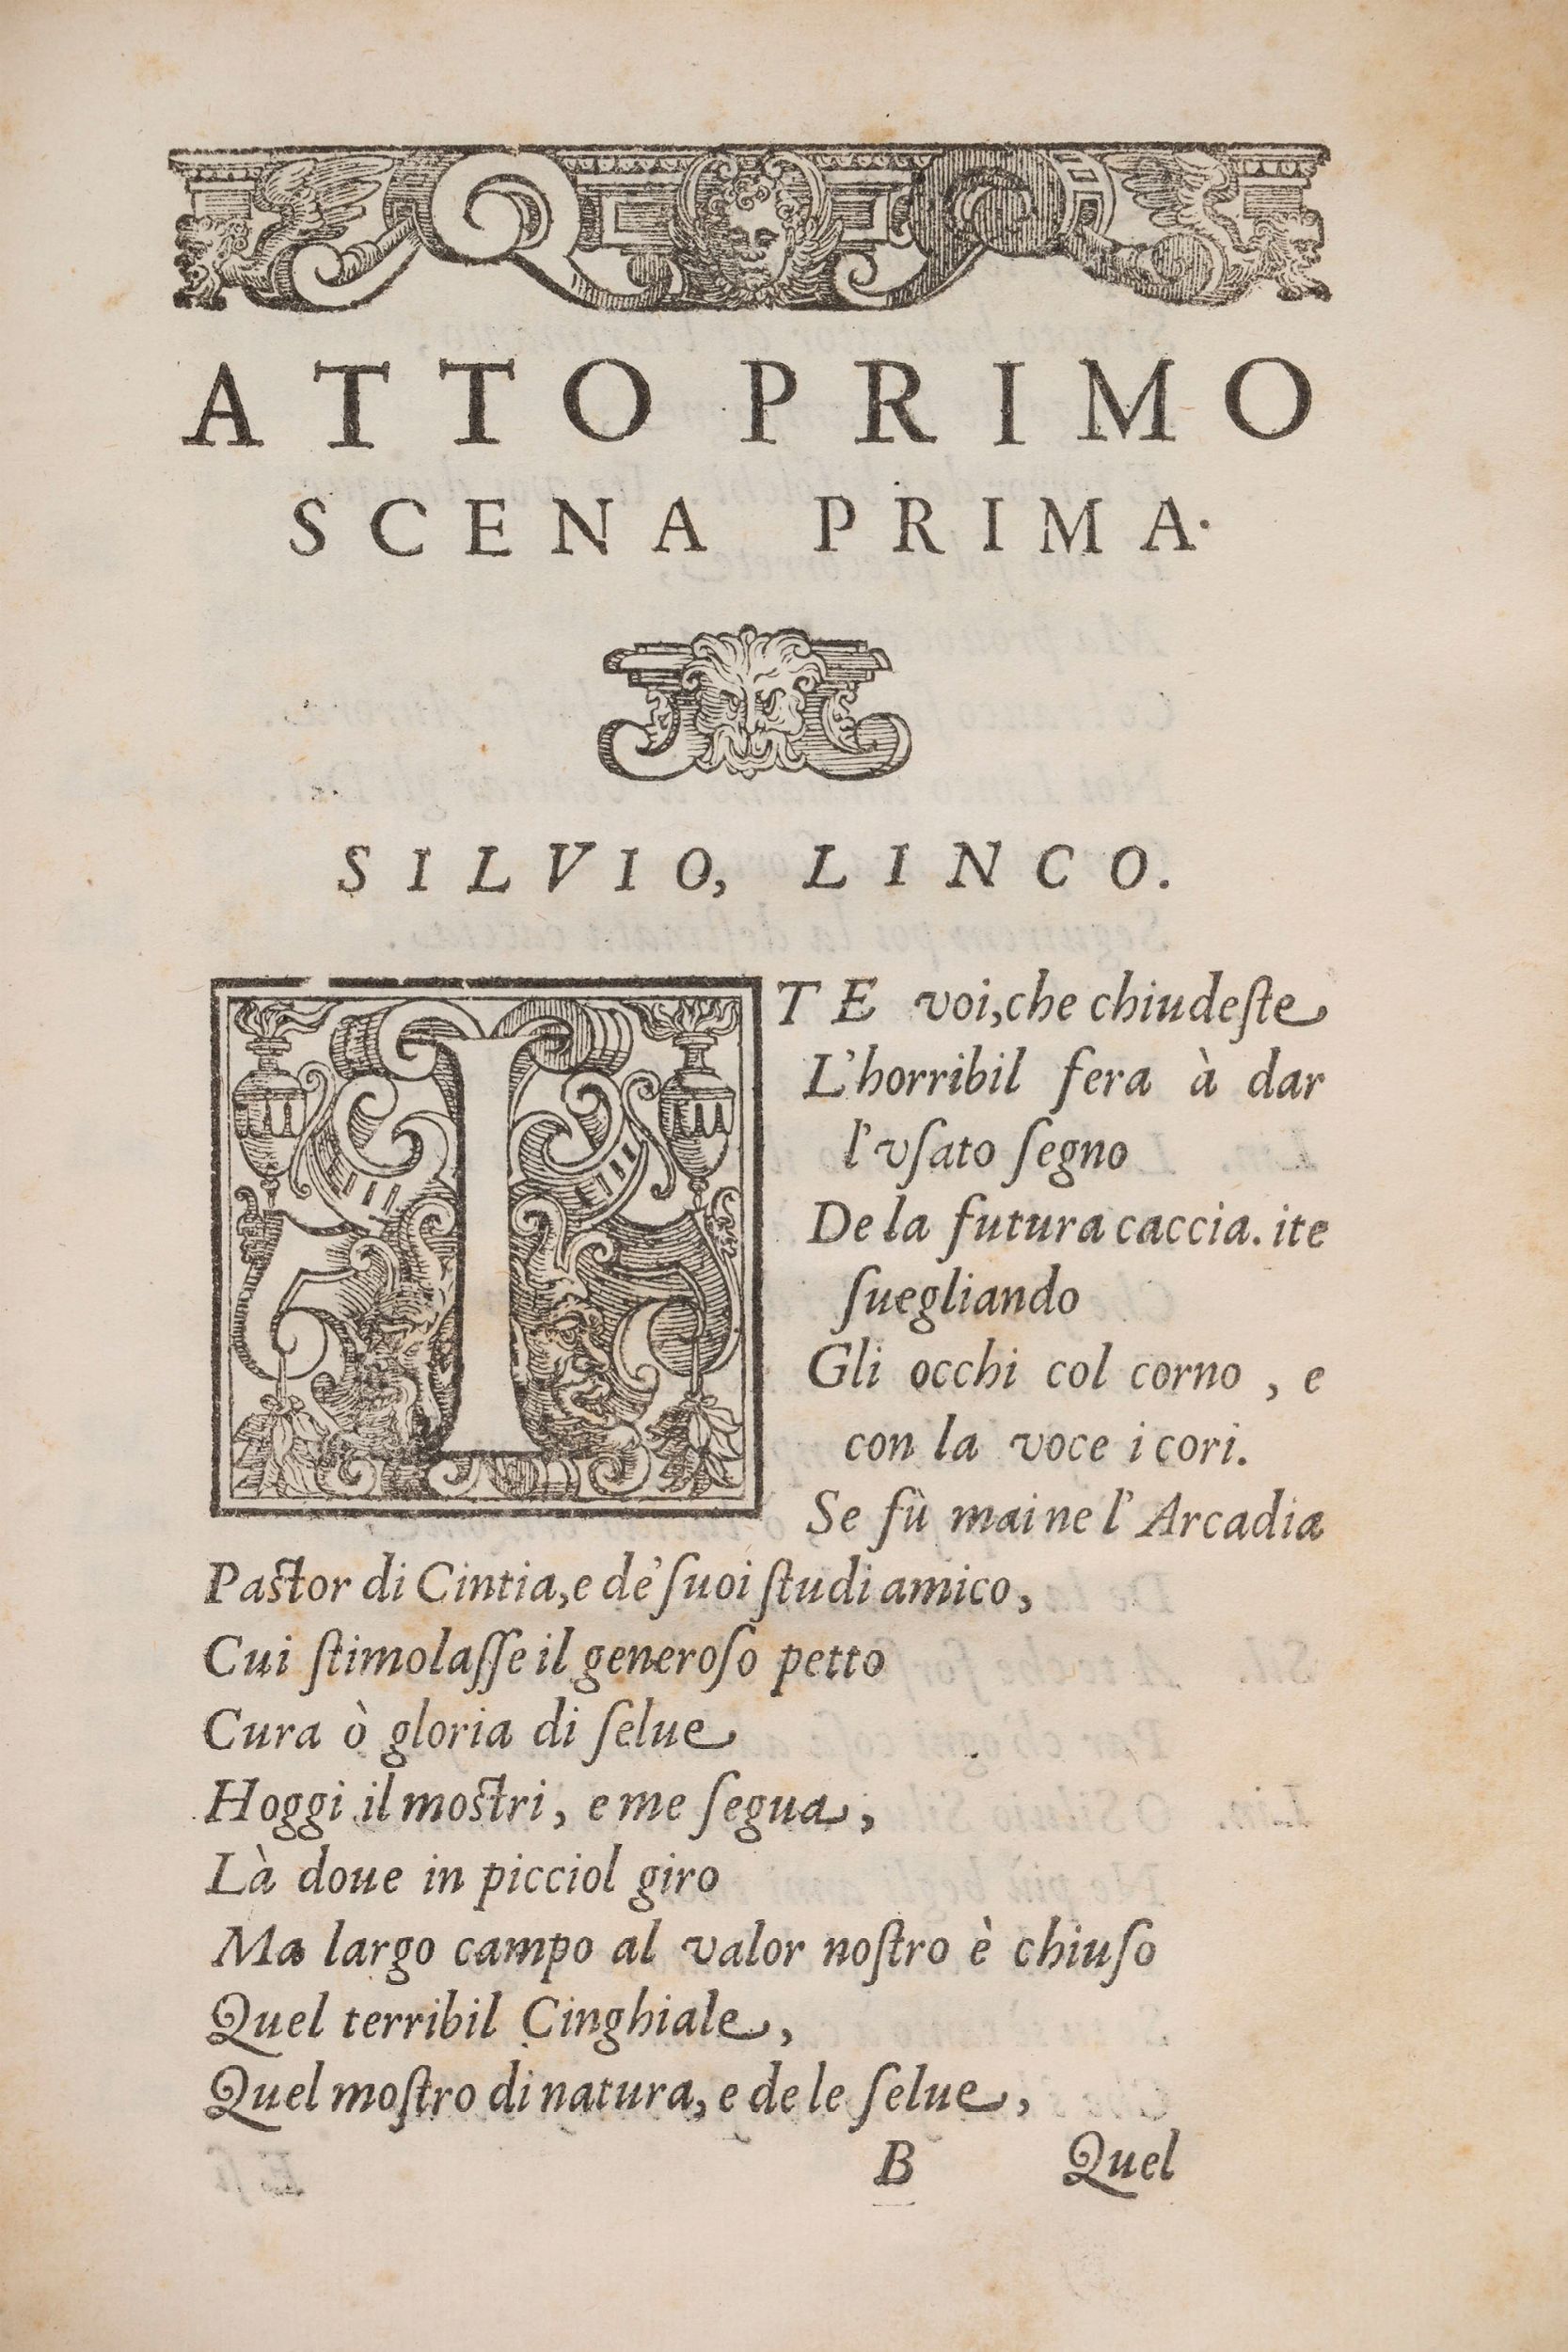 ATTO PRIMO
SCENA PRIMA.
SILVIO, LINCO.
ITE voi, che chiudeſte
L'horribil fera à dar
l'vſato ſegno
De la futura caccia. ite
ſuegliando
Gli occhi col corno, e
con la voce i cori.
Se fù mai ne l'Arcadia
Paſtor di Cintia, e de' ſuoi ſtudi amico,
Cui ſtimolaſſe il generoſo petto
Cura ò gloria di ſelue
Hoggi il moſtri, e me ſegua,
Là doue in picciol giro
Ma largo campo al valor noſtro è chiuſo
Quel terribil Cinghiale,
Quel moſtro di natura, e de le ſelue,
B Quel